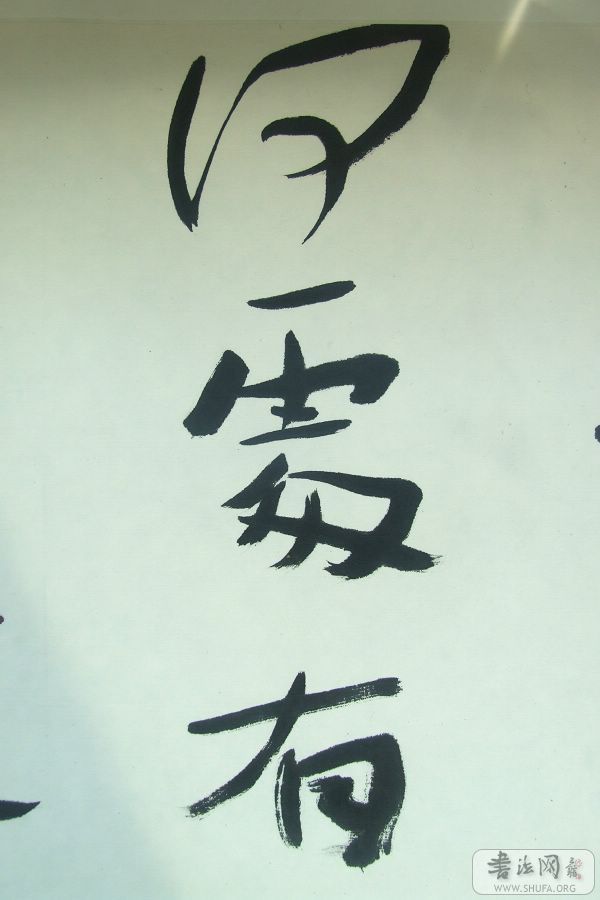 何處有
書法网
WWW.SHUFA.ORG